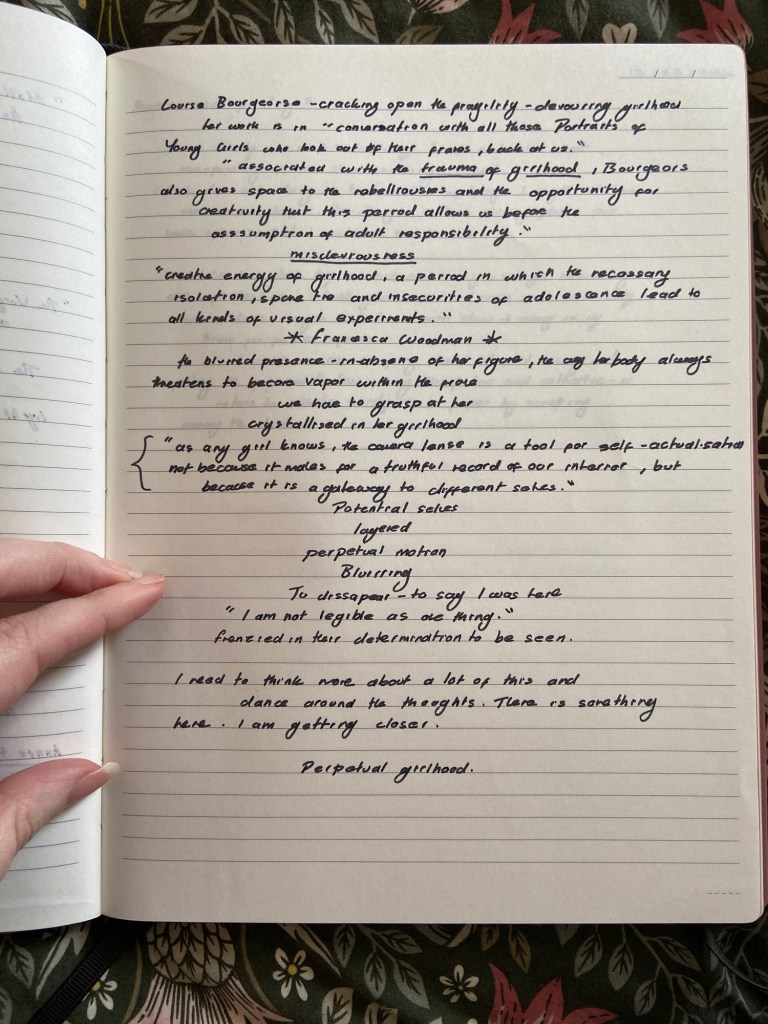 Louise Bourgeorse - cracking open the fragility - devouring girlhood
her work is in "conversation with all those Portraits of
Young Girls who look out of their frames, back at us."
"associated with the trauma of girlhood, Bourgeois
also gives space to the rebelliousness and the opportunity for
creativity that this period allows us before the
asssumption of adult responsibility."
misdevrousness
"creative energy of girlhood, a period in which the necessary
isolation, spare time and insecurities of adolescence lead to
all kinds of visual experiments."
* Francesca Woodman *
the blurred presence-in-absence of her figure, the way her body always
threatens to become vapor within the frame
we have to grasp at her
crystallised in her girlhood
"as any girl knows, the camera lense is a tool for self-actualisation
not because it makes for a truthful record of our interior, but
because it is a gateway to different selves."
Potential selves
layered
perpetual motion
Blurring
To dissapear - to say I was here
"I am not legible as one thing."
frenzied in their determination to be seen.
I need to think more about a lot of this and
dance around the thoughts. There is something
here. I am getting closer.
Perpetual girlhood.